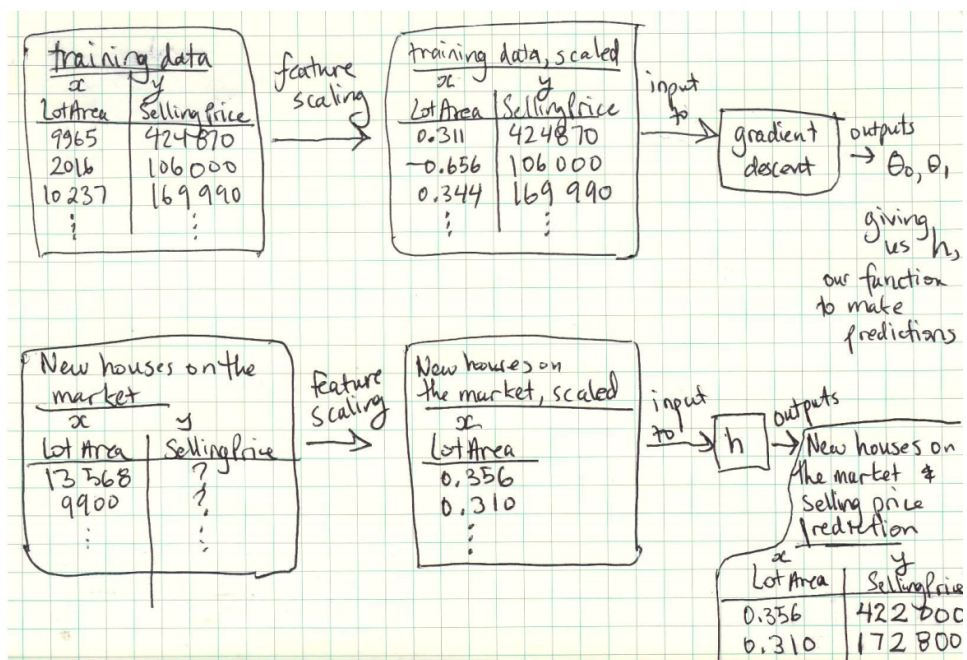 training data
x y
LotArea SellingPrice
9965 424870
2016 106000
10237 169990
feature
scaling
training data, scaled
x y
LotArea SellingPrice
0.311 424870
-0.656 106000
0.344 169990
input
to
gradient
descent
outputs
θ0, θ1
giving
us h,
our function
to make
predictions
New houses on the
market
x y
Lot Area SellingPrice
13568 ?
9900 ?
feature
scaling
New houses on
the market, scaled
x
LotArea
0.356
0.310
input
to
h
outputs
New houses on
the market &
selling price
x y
Lot Area SellingPrice
0.356 422000
0.310 172800